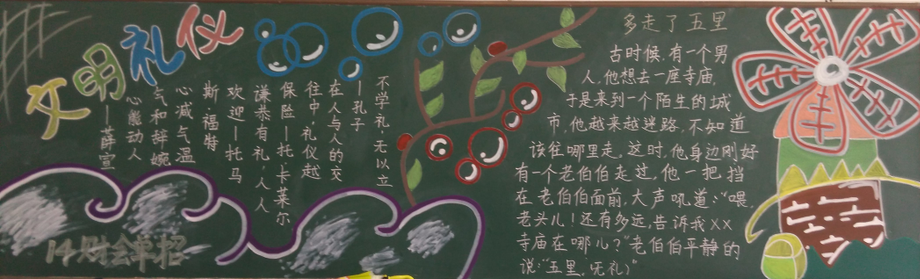 文明礼仪
不学礼,无以立
—孔子
在人与人的交
往中,礼仪越
保险—托·卡莱尔
谦恭有礼,人人
欢迎—托马
斯福特
心减气温
气和辞婉
动人
—薛宣
14财会单招
多走了五里
古时候,有一个男
人,他想去一座寺庙,
于是来到一个陌生的城
市,他越来越迷路,不知道
该往哪里走,这时,他身边刚好
有一个老伯伯走过,他一把挡
在老伯伯面前,大声吼道:“喂,
老头儿!还有多远,告诉我XX
寺庙在哪儿?”老伯伯平静的
说:“五里,无礼)”